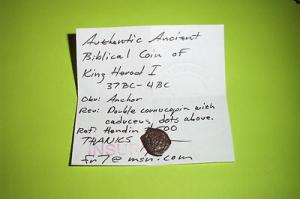 Authentic Ancient
Biblical Coin of
King Herod I
37BC-4BC
Obv: Anchor
Rev: Double cornucopia with
caduceus, dots above.
Ref: Hendin
THANKS
fr7@msn.com